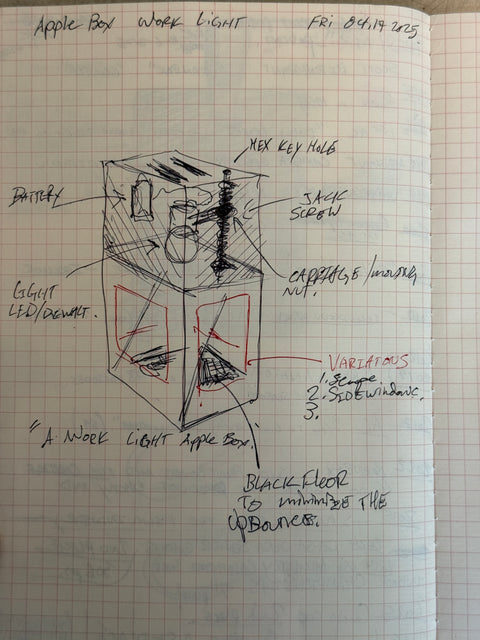 Apple Box Work Light Fri Oct, 2025
HEX KEY HOLE
BATTERY
JACK
SCREW
CARRIAGE/MOVING
NUT.
LIGHT
LED/DEWALT.
VARIATIONS
1.
2. SIDE WINDOW.
3.
"A WORK LIGHT Apple Box."
BLACK FLOOR
TO minimize THE
UPBOUNCE.